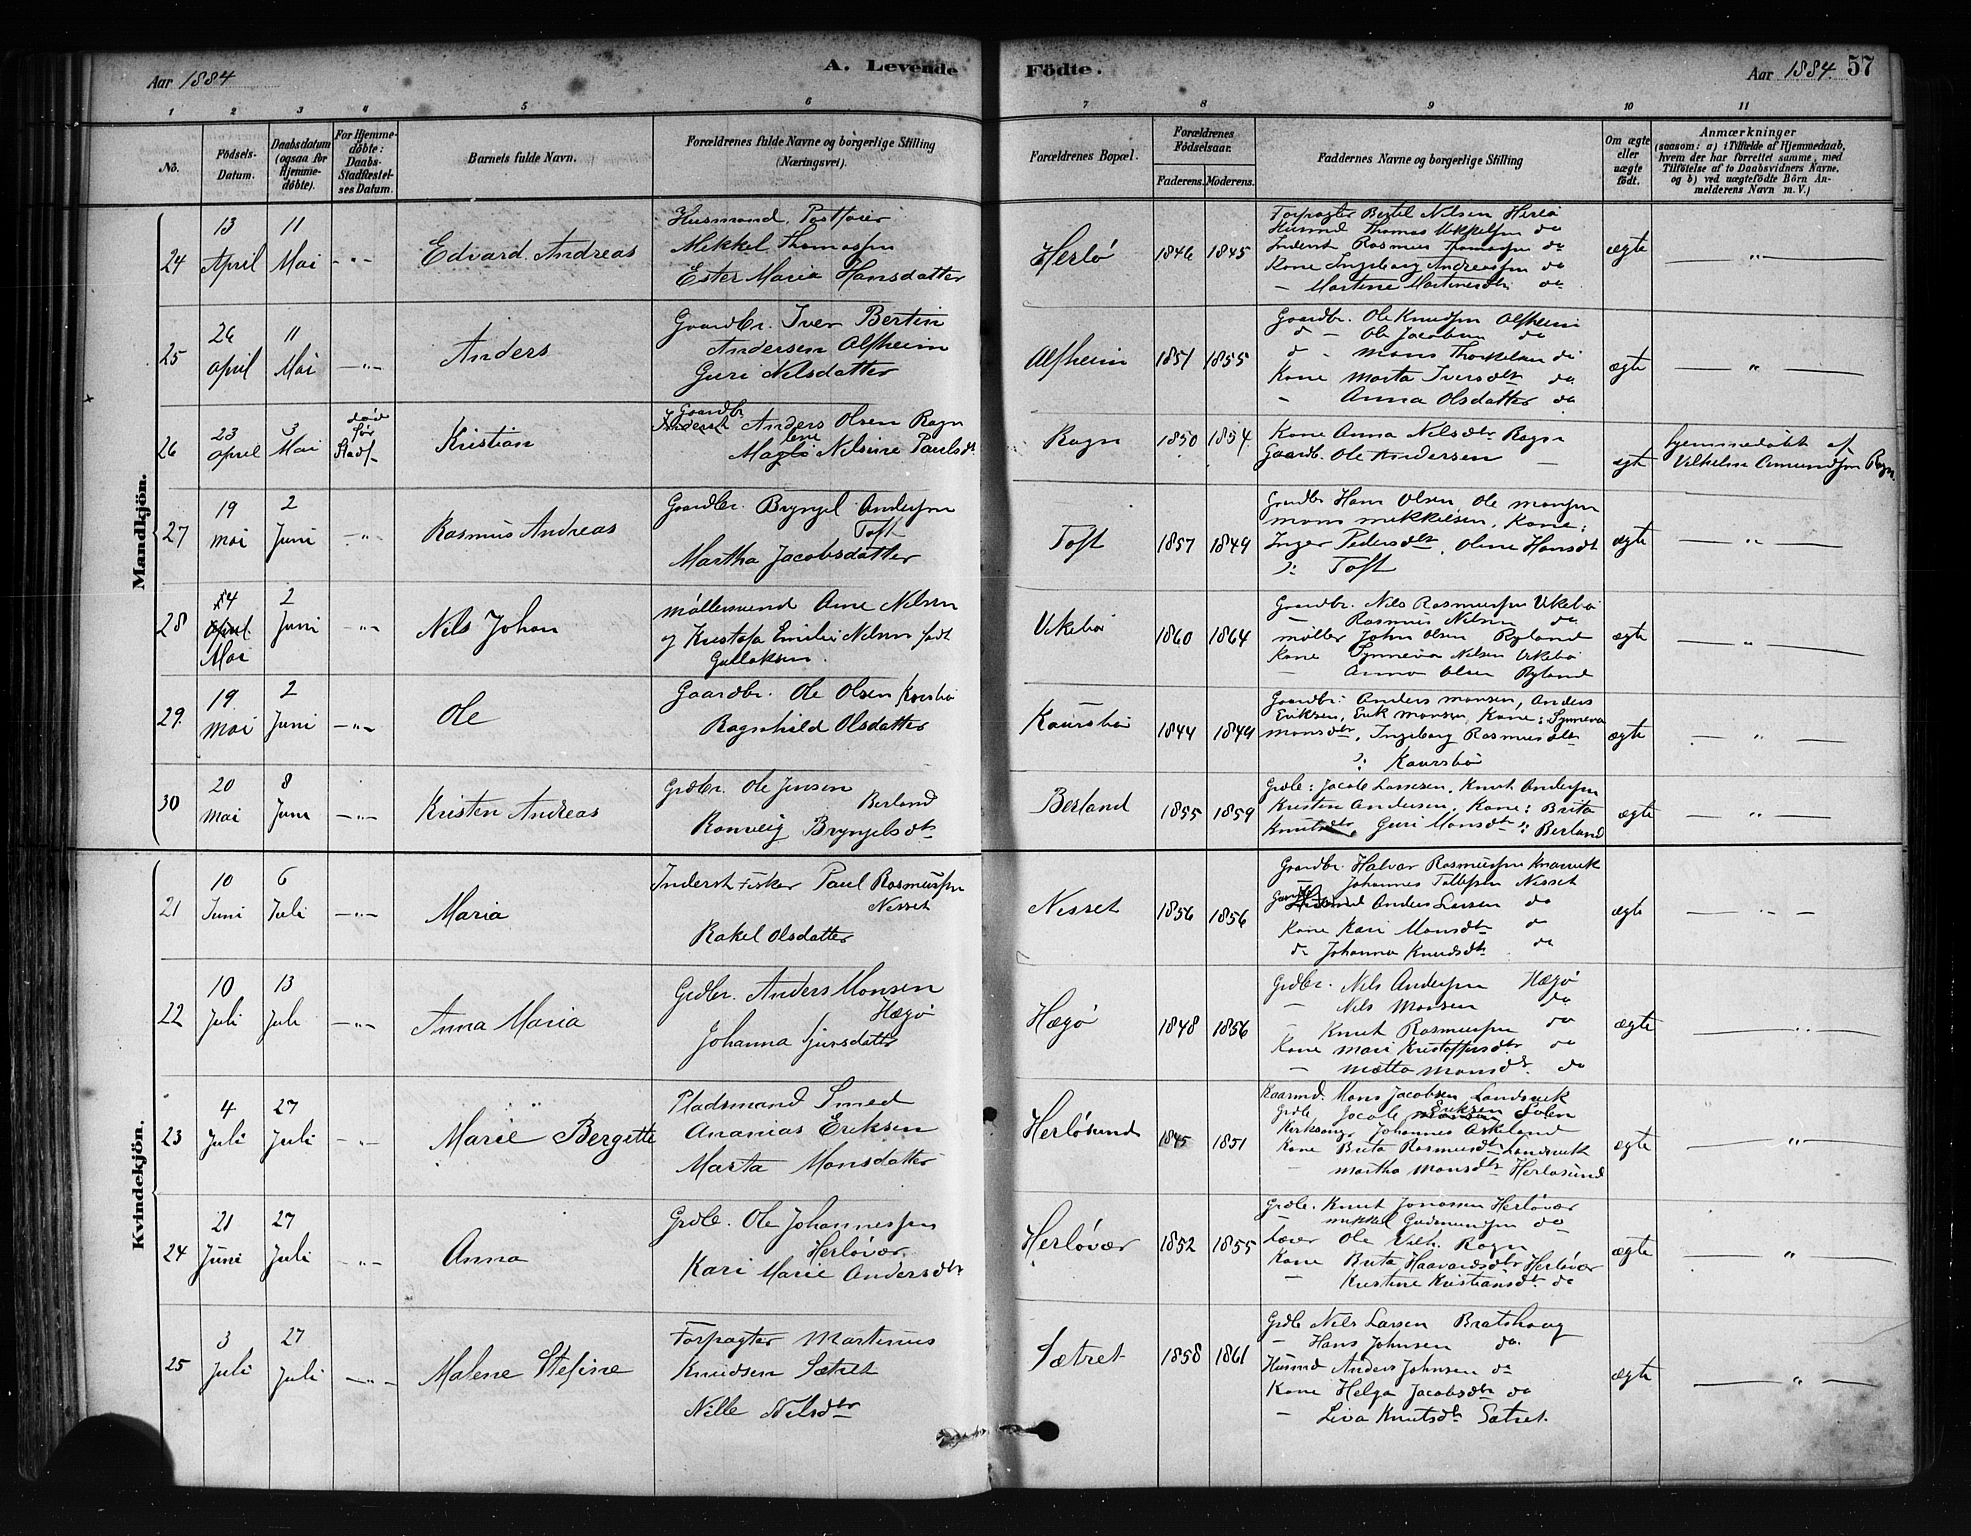 Aar 1884
A. Levende Födte.
Aar 1884. 57
1 2 3 4 5 6 7 8 9 10 11
No.
Födsels-Datum.
Daabsdatum (ogsaa for Hjemme-döbte).
For Hjemme-döbte: Daabs-Stadfæstel-ses Datum.
Barnets fulde Navn.
Forældrenes fulde Navne og borgerlige Stilling (Næringsvei).
Forældrenes Bopæl.
Forældrenes Födselsaar.
Faderens. Moderens.
Faddernes Navne og borgerlige Stilling
Om ægte eller uægte födt.
Anmærkninger
(saasom: a) i Tilfælde af Hjemmedaab,
hvem der har forrettet samme, med
Tilföielse af to Daabsvidners Navne,
og b) ved uægtefödte Börn An-
melderens Navn m. V.)
Mandkjön.
24 13 April 11 Mai -"- Edvard Andreas
Husmand, Postfører
Mikkel Thomassen
Ester Maria Hansdatter
Herlø 1846 1845
Forpagter Bertel Nilsen Herlø
Husmd Thomas Mikkelsen do
Inderst Rasmus Thomassen do
Kone Ingeborg Andreassen do
- Martine Martinusdtr do
ægte — " —
25 26 April 11 Mai -"- Anders
Gaardbr. Iver Bertin
Andersen Alfheim
Guri Nilsdatter
Alfheim 1851 1855
Gaardbr. Ole Knudsen Alfheim
d - Ole Jacobsen do
d - Mons Thorkelsen do
Kone Marta Iversdtr do
- Anna Olsdatter do
ægte — " —
26 23 April 3 Mai død før Stadf. Kristian
Gaardbr
Inderst Anders Olsen Rogn
Magle Nilsine Paulsdtr
Rogn 1850 1854
Kone Anna Nilsdtr Rogn
Gaardb. Ole Andersen —
egte
hjemmedøbt af
Vilhelm Amundsen Rogn.
27 19 Mai 2 Juni -"- Rasmus Andreas
Gaardbr. Bryngel Andersen
Toft
Martha Jacobsdatter
Toft 1857 1849
Gaardbr Hans Olsen, Ole Monsen
Mons Mikkelsen, Kone:
Inger Pedersdtr, Oline Hansdt
): Toft
ægte — " —
28 4 April Mai 2 Juni -"- Nils Johan
Møllersvend Arne Nilsen
og Kristofa Emilie Nilsen født
Gulloksen.
Vikebø 1860 1864
Gaardbr. Nils Rasmussen Vikebø
— Rasmus Nilsen do
Møller John Olsen Ryland
Kone Synneva Nilsen Vikebø
— Anna Olsen Ryland
ægte — " —
29. 19 Mai 2 Juni -"- Ole
Gaardbr. Ole Olsen Kousbø
Ragnhild Olsdatter
Koursbø 1844 1849
Gaardbr: Anders Monsen, Anders
Eriksen, Erik Monsen, Kone: Synneva
Monsdtr, Ingeborg Rasmusdtr
): Koursbø
ægte — " —
30 20 Mai 8 Juni -"- Kristen Andreas
Grdbr. Ole Jensen
Berland
Ronveig Bryngelsdtr
Berland 1855 1859
Grdb: Jacob Lassesen, Knut Andersen
Kristen Andersen, Kone: Brita
Knutsdtr, Guri Monsdtr ): Berland
ægte — " —
Kvindekjön.
21 10 Juni 6 Juli -"- Maria
Inderst Fisker Paul Rasmussen
Nesset
Rakel Olsdatter
Nesset 1856 1856
Gaardbr. Halvor Rasmussen Knarvik
— Johannes Tollefsen Nesset
Anders Larsen do
Kone Kari Monsdtr do
do Johanna Knudsdtr do
ægte — " —
22 10 Juli 13 Juli -"- Anna Maria
Grdbr. Anders Monsen
Hægø
Johanna Sjursdatter
Hægø 1848 1856
Grdbr. Nils Andersen Hægø
— Nils Monsen do
- Knut Rasmussen do
Kone Mari Kristoffersdtr do
- Mætta Monsdtr. do
ægte — " —
23 4 Juli 27 Juli -"- Marie Bergitte
Pladsmand Smed
Ananias Eriksen
Marta Monsdatter
Herløsund 1845 1851
Kaarmd. Mons Jacobsen Landsvik
Grdb Jacob Eriksen
Kirksanger Johannes Askeland
Kone Brita Rasmusdtr Landsvik
- Martha Monsdtr Herløsund
ægte — " —
24 21 Juni 27 Juli -"- Anna
Grdb. Ole Johannessen
Herløvær
Kari Marie Andersdtr
Herløvær 1852 1855
Grdb. Knut Jonassen Herløvær
Mikkel Gudmundsen do
Lærer Ole Vilh. Rogn
Kone Brita Haavardsdtr Herløvær
— Kristine Kristiansdtr do
ægte — " —
25 3 Juli 27 Juli -"- Malene Stefine
Forpagter Martinus
Knudsen Sætret
Nille Nilsdtr
Sætret 1858 1861
Grdb Nils Larsen Bratshaug
— Hans Johnsen do.
Husmd Anders Johnsen do
Kone Helga Jacobsdtr do
- Liva Knutsdtr Sætret
ægte — " —